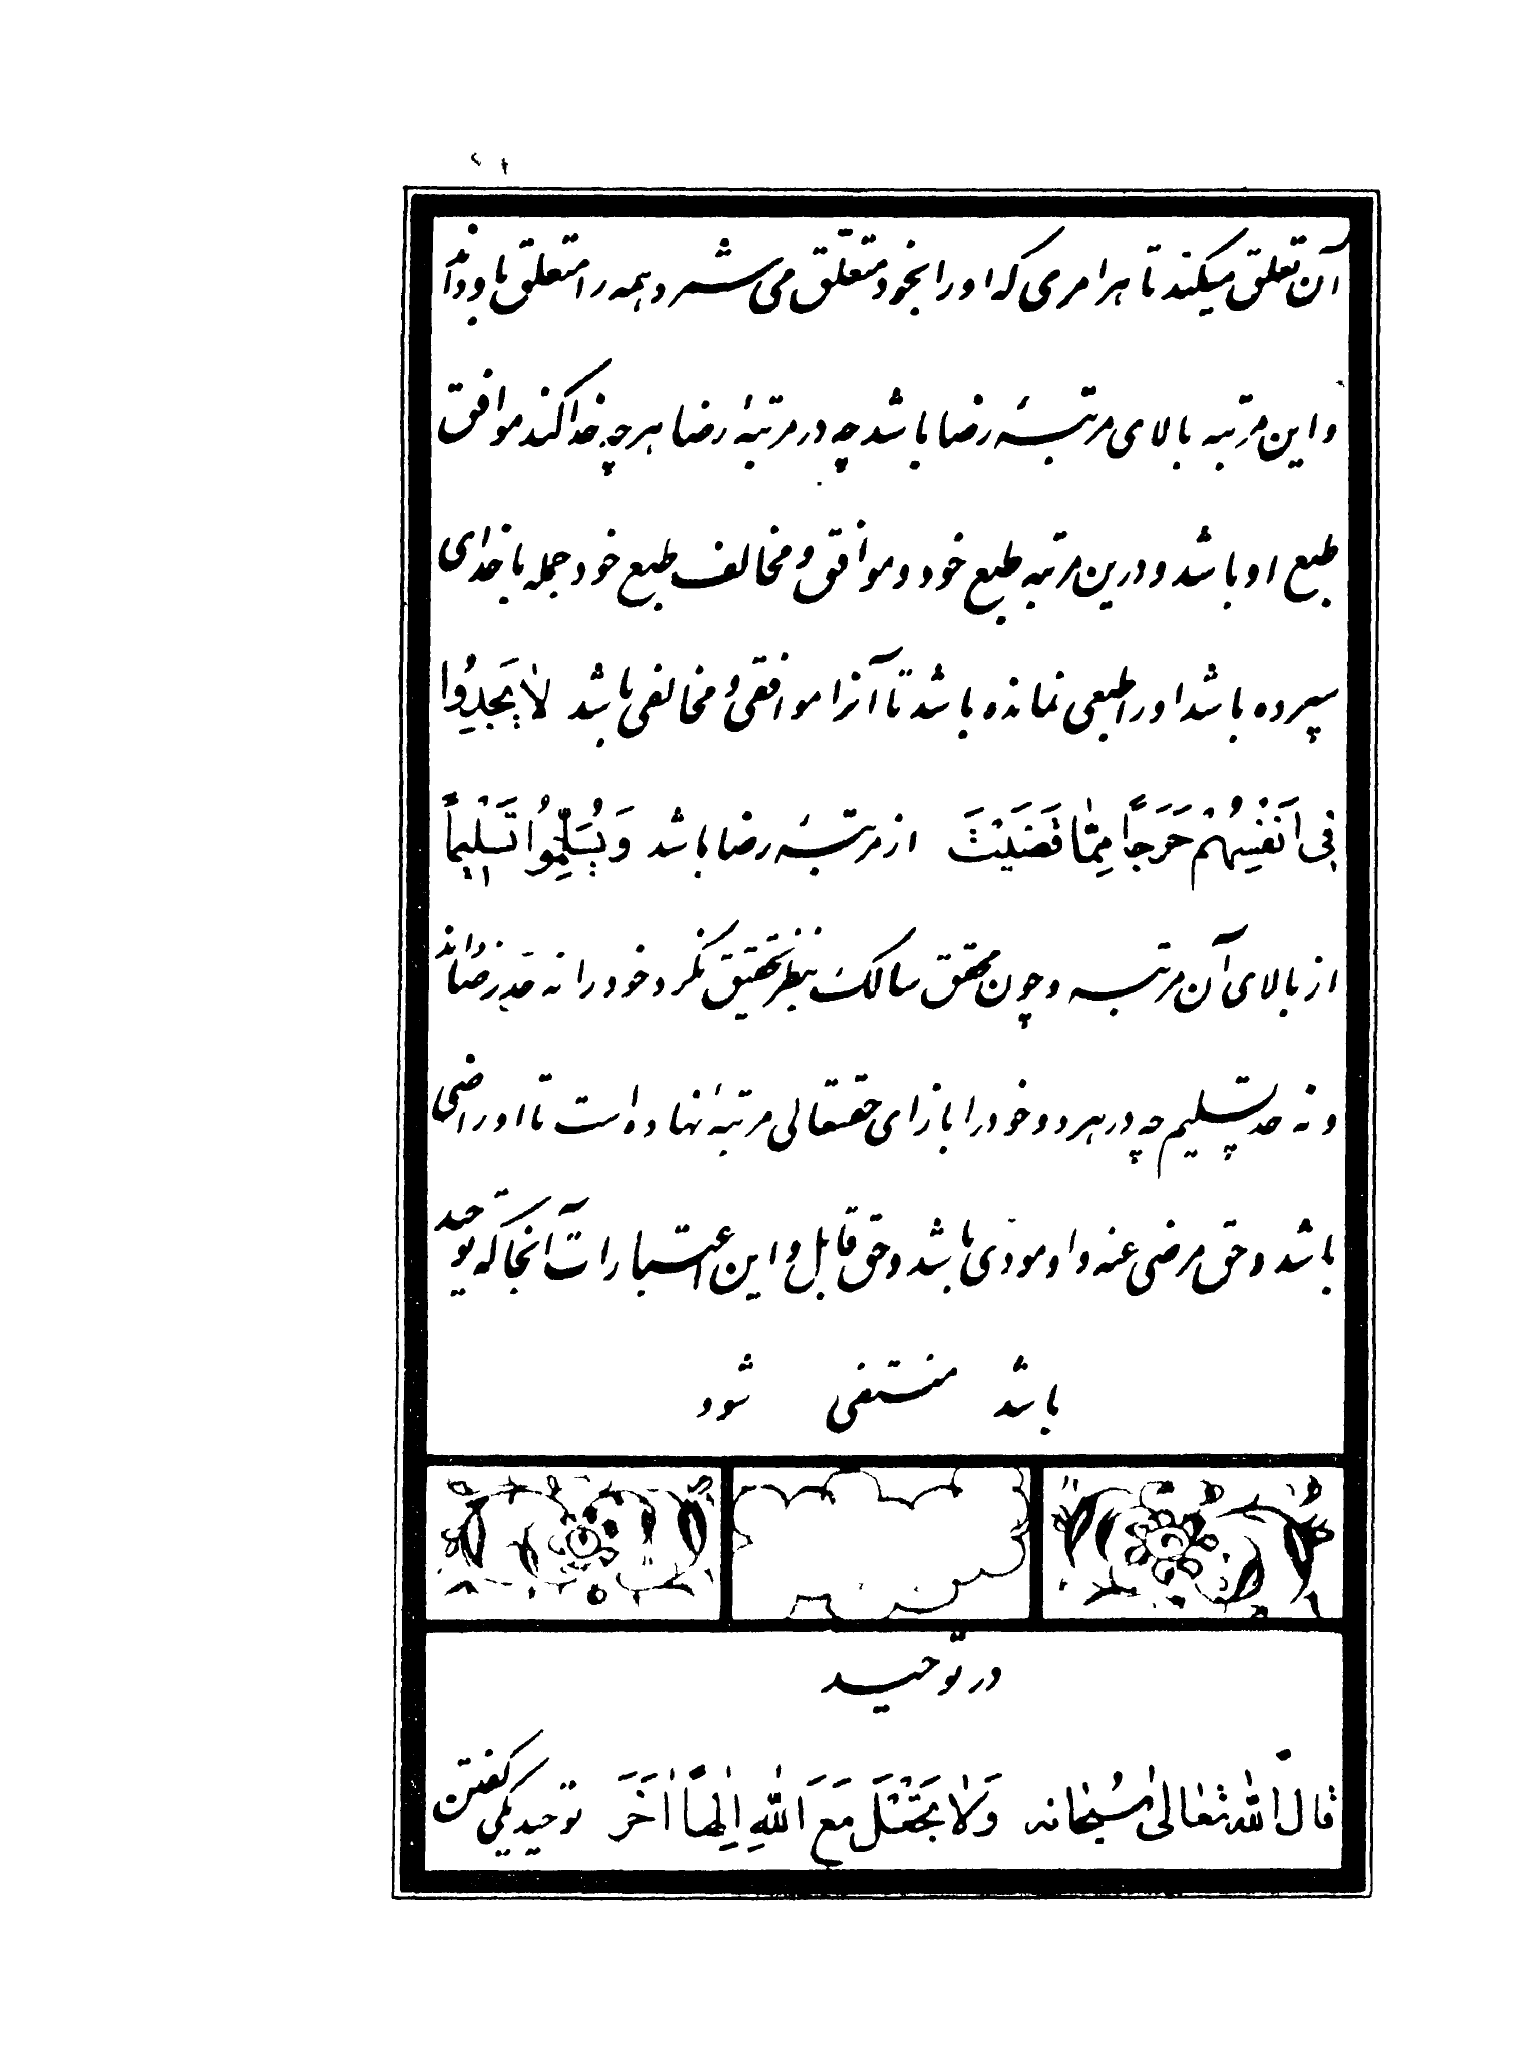 آن تعلق میکند تا هر امری که او را بخود متعلق می شمرد همه را متعلق باو داند
و این مرتبه بالای مرتبهٔ رضا باشد چه در مرتبهٔ رضا هر چه خدا کند موافق
طبع او باشد و درین مرتبه طبع خود و موافق و مخالف طبع خود جمله با خدای
سپرده باشد او را طبعی نمانده باشد تا آنرا موافقی و مخالفی باشد لا یَجِدُوا
فِی اَنْفُسِهِمْ حَرَجاً مِمّٰا قَضَیْتَ از مرتبهٔ رضا باشد وَ یُسَلِّمُوا تَسْلِیماً
از بالای آن مرتبه و چون محقق سالک بنظر تحقیق نگرد خود را نه حد رضا داند
و نه حد تسلیم چه در هر دو خود را بازای حقتعالی مرتبهٔ نهاده است تا او راضی
باشد و حق مرضی عنه و او مودی باشد و حق قابل و این اعتبارات آنجا که توحید
باشد منتفی شود
در توحید
قال اللّٰه تعالیٰ سُبحانه وَلاٰ تَجْعَلْ مَعَ اللّٰهِ اِلٰهاً اٰخَرَ توحید یکی گفتن